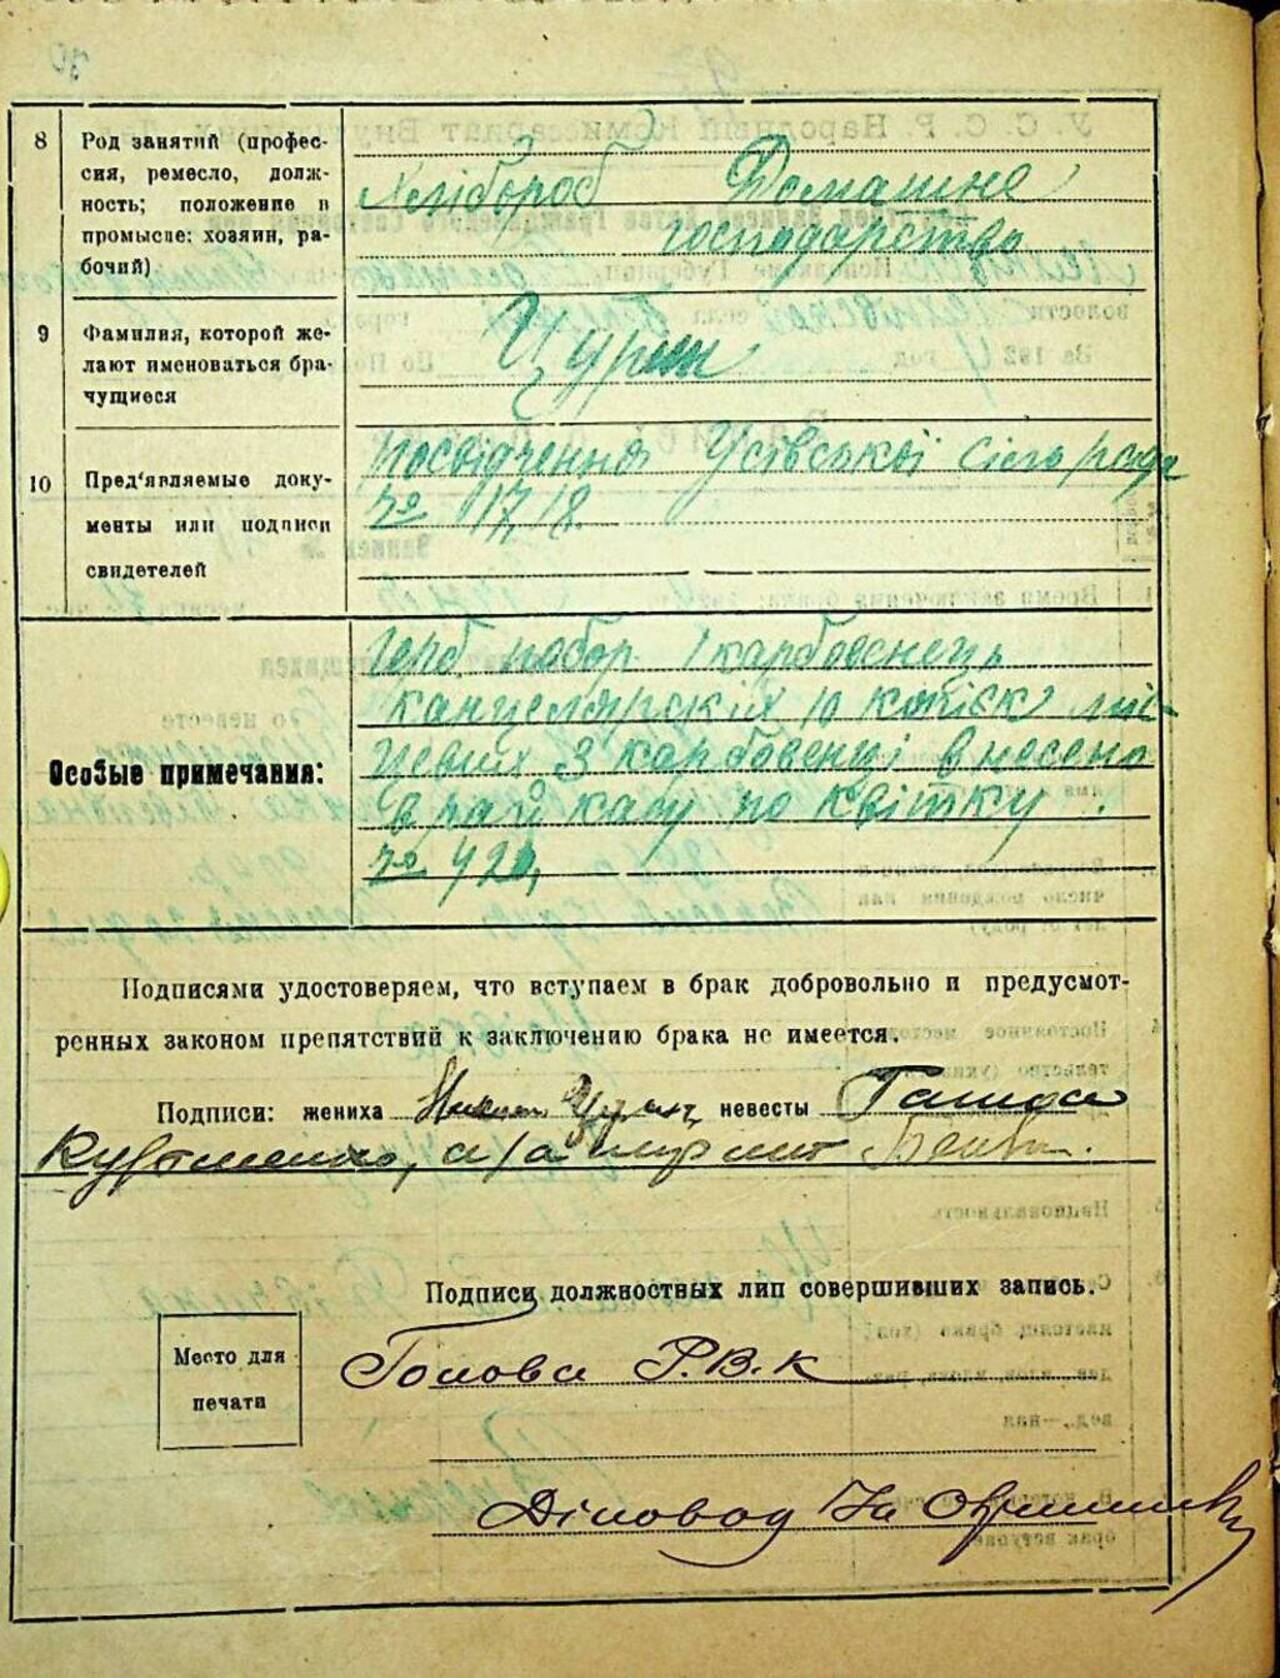 8 Род занятий (профес-
сия, ремесло, долж-
ность; положение в
промысле: хозяин, ра-
бочий)
Хлібороб Домашне
господарство
9 Фамилия, которой же-
лают именоваться бра-
чущиеся
Цурин
10 Пред'являемые доку-
менты или подписи
свидетелей
Посвідчення Усівської сільради
№ 17, 18.
Особые примечания:
Герб. побор 1 карбованець
канцелярских 10 копієк мі-
цевих 3 карбованці внесено
в рай касу по квітку
№ 420,
Подписями удостоверяем, что вступаем в брак добровольно и предусмот-
ренных законом препятствий к заключению брака не имеется.
Подписи: жениха невесты
Подписи должностных лип совершивших запись.
Место для
печати
Голова Р.В.К
Діловод За